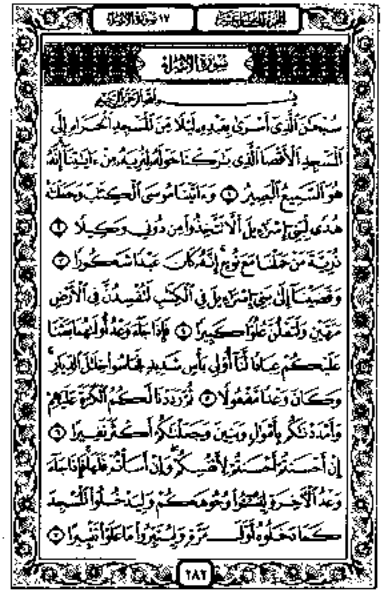 ١٧ سورة الإسراء
سورة الإسراء
بسم الله الرحمن الرحيم
سُبْحَٰنَ ٱلَّذِىٓ أَسْرَىٰ بِعَبْدِهِۦ لَيْلًا مِّنَ ٱلْمَسْجِدِ ٱلْحَرَامِ إِلَى
ٱلْمَسْجِدِ ٱلْأَقْصَا ٱلَّذِى بَٰرَكْنَا حَوْلَهُۥ لِنُرِيَهُۥ مِنْ ءَايَٰتِنَآ إِنَّهُۥ
هُوَ ٱلسَّمِيعُ ٱلْبَصِيرُ ١ وَءَاتَيْنَا مُوسَى ٱلْكِتَٰبَ وَجَعَلْنَٰهُ
هُدًى لِّبَنِىٓ إِسْرَٰٓءِيلَ أَلَّا تَتَّخِذُوا۟ مِن دُونِى وَكِيلًا ٢
ذُرِّيَّةَ مَنْ حَمَلْنَا مَعَ نُوحٍ إِنَّهُۥ كَانَ عَبْدًا شَكُورًا ٣
وَقَضَيْنَآ إِلَىٰ بَنِىٓ إِسْرَٰٓءِيلَ فِى ٱلْكِتَٰبِ لَتُفْسِدُنَّ فِى ٱلْأَرْضِ
مَرَّتَيْنِ وَلَتَعْلُنَّ عُلُوًّا كَبِيرًا ٤ فَإِذَا جَآءَ وَعْدُ أُولَىٰهُمَا بَعَثْنَا
عَلَيْكُمْ عِبَادًا لَّنَآ أُو۟لِى بَأْسٍ شَدِيدٍ فَجَاسُوا۟ خِلَٰلَ ٱلدِّيَارِ
وَكَانَ وَعْدًا مَّفْعُولًا ٥ ثُمَّ رَدَدْنَا لَكُمُ ٱلْكَرَّةَ عَلَيْهِمْ
وَأَمْدَدْنَٰكُم بِأَمْوَٰلٍ وَبَنِينَ وَجَعَلْنَٰكُمْ أَكْثَرَ نَفِيرًا ٦
إِنْ أَحْسَنتُمْ أَحْسَنتُمْ لِأَنفُسِكُمْ وَإِنْ أَسَأْتُمْ فَلَهَا فَإِذَا جَآءَ
وَعْدُ ٱلْءَاخِرَةِ لِيَسُۥٓـُٔوا۟ وُجُوهَكُمْ وَلِيَدْخُلُوا۟ ٱلْمَسْجِدَ
كَمَا دَخَلُوهُ أَوَّلَ مَرَّةٍ وَلِيُتَبِّرُوا۟ مَا عَلَوْا۟ تَتْبِيرًا ٧
٢٨٢